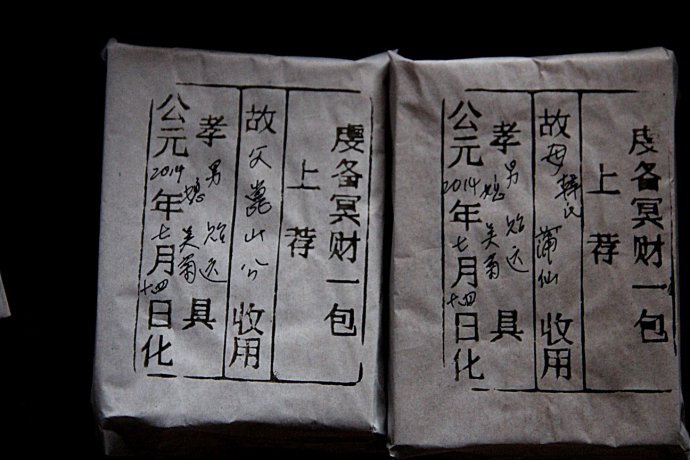 虔备冥财一包
上荐
故父山公收用
孝男远具
媳菊
公元2014年七月十四日化
虔备冥财一包
上荐
故母氏蒲仙收用
孝男远具
媳菊
公元2014年七月十四日化